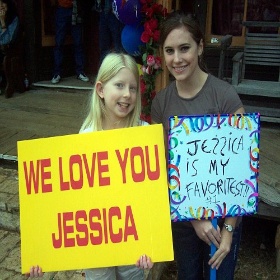 WE LOVE YOU
JESSICA
JESSICA
IS MY
FAVORITEST!!!
#1